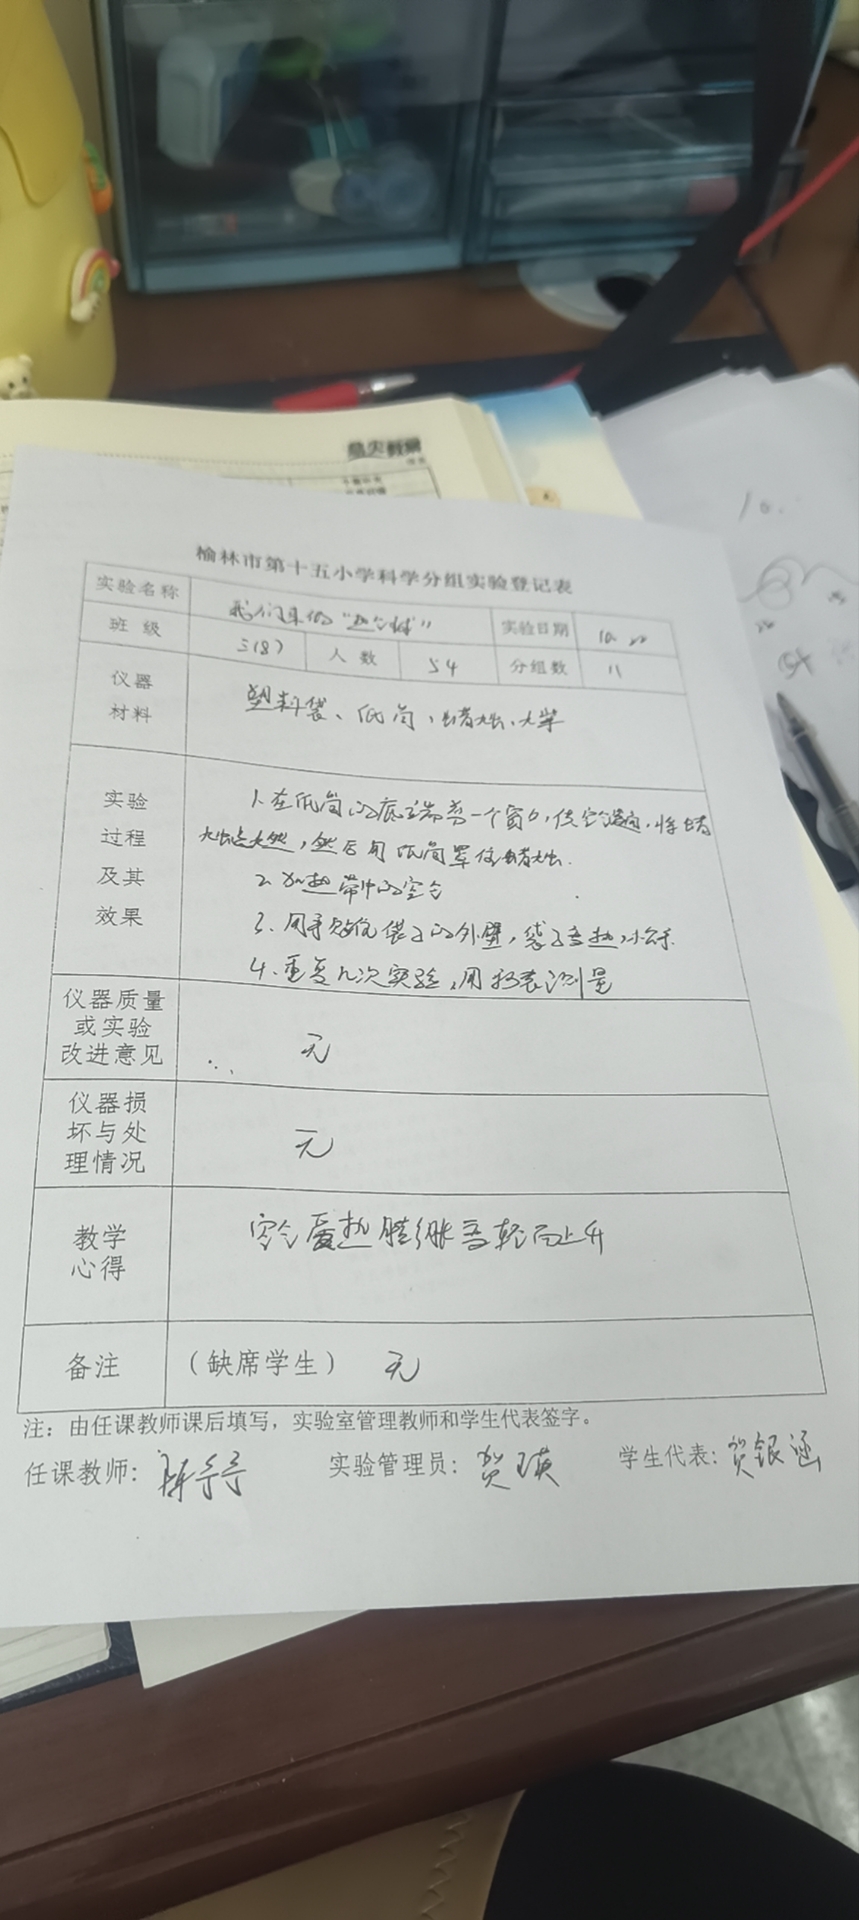 榆林市第十五小学科学分组实验登记表
实验名称 我们来做“热气球” 实验日期 10.22
班级 三(8) 人数 54 分组数 11
仪器材料 塑料袋、纸筒、蜡烛、火柴
实验过程及其效果
1.在纸筒的底端剪一个窗口,使空气流通,将蜡
烛点燃,然后用纸筒罩住蜡烛.
2.加热袋中的空气
3.用手放在袋子的外壁,袋子变热,松手.
4.重复几次实验,用秒表测量
仪器质量或实验改进意见 无
仪器损坏与处理情况 无
教学心得 空气受热膨胀变轻而上升
备注 (缺席学生) 无
注:由任课教师课后填写,实验室管理教师和学生代表签字。
任课教师: 实验管理员:贺瑛 学生代表:贺银涵
10.
54